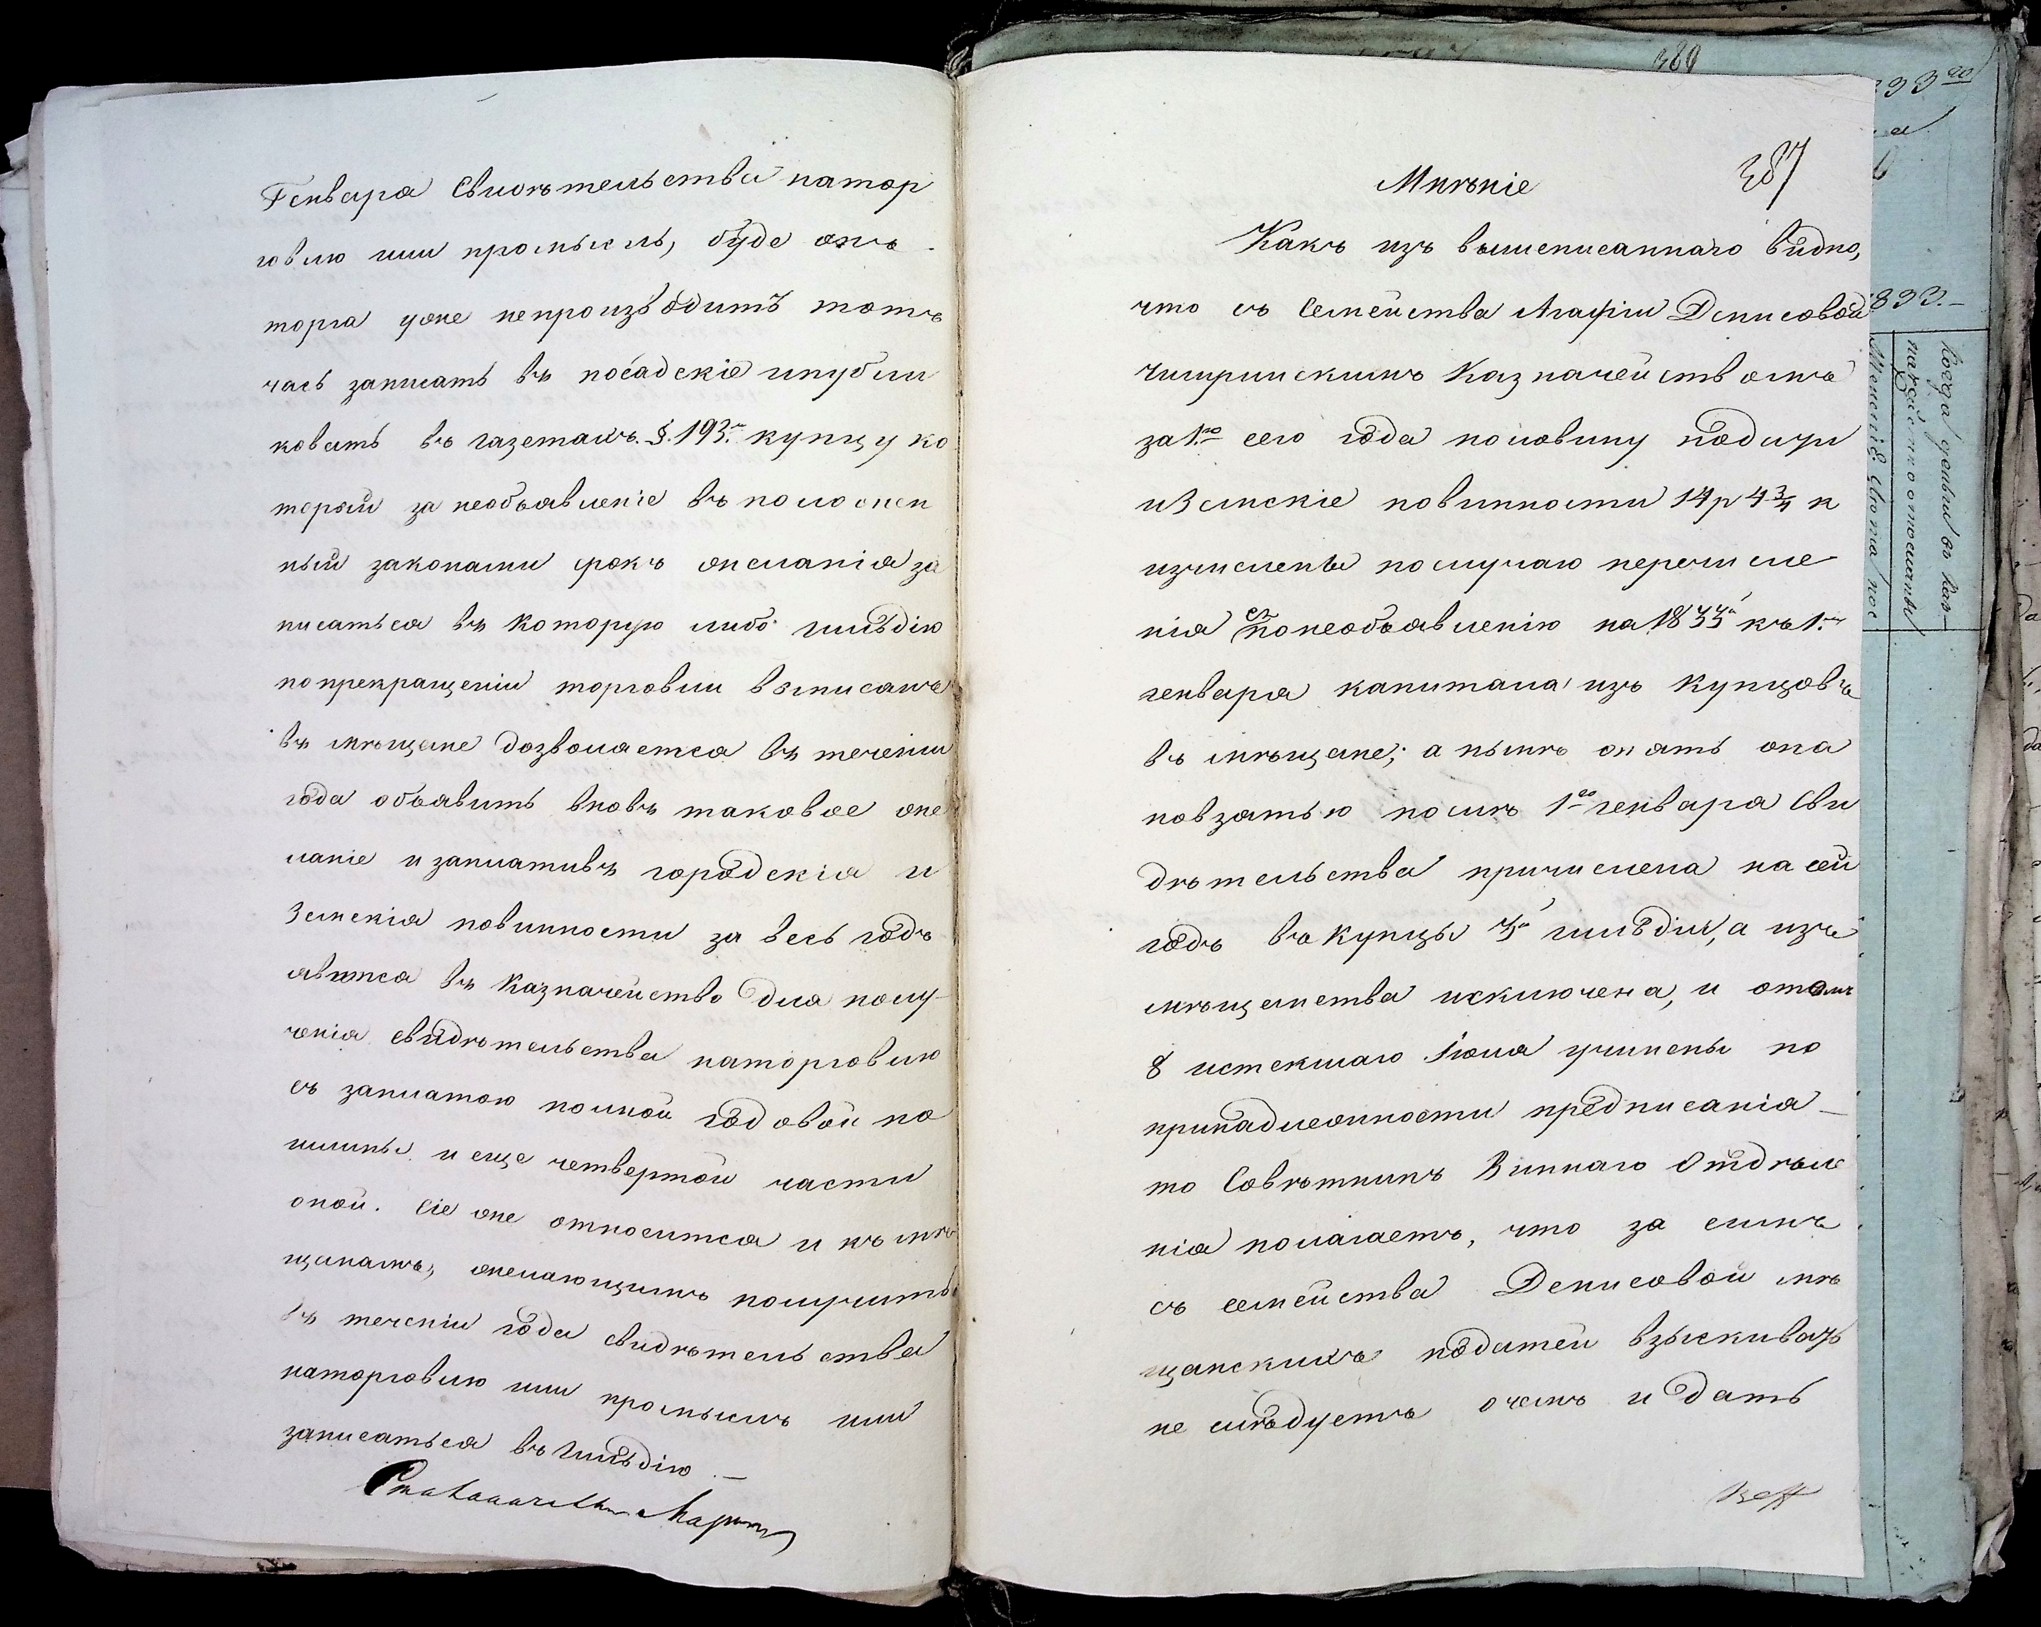 Генваря Свидѣтельства натор
говлю или промыслъ, буде онъ
торга уже непроизводитъ тотъ
часъ записать въ посадскіе ипубли
ковать въ газетахъ. §. 193. купцу ко
торый за необъявленіе въ положен
ный законами срокъ желанія за
писаться въ которую либо гильдію
попрекращеніи торговли взписанъ
въ мѣщане дозволяется въ теченіи
года объявить вновь таковое же
ланіе и заплативъ городскія и
Земскія повинности за весь годъ
явится въ Казначейство для полу-
ченія свидѣтельства наторговлю
съ заплатою полной годовой по
шлины и еще четвертой части
оной. Сіе же относится и къ мѣ
щанамъ, желающимъ получить
въ теченіи года свидѣтельства
наторговлю или промыслъ или
записаться въ Гильдію. —
387
Мнѣніе
Какъ изъ вышеписаннаго видно,
что съ Семейства Агафіи Денисовой
Чигиринскимъ Казначействомъ
за 1ю сего года половину подати
иЗемскіе повинности 14 р 4 3/4 к
изчислены послучаю перечисле
нія ея понеобъявленію на 1833й къ 1му
генваря капитала изъ купцовъ
въ мѣщане; а нынѣ опять она
повзятью послѣ 1го генваря Сви
дѣтельства причислена на сей
годъ въ купцы 3й гильдіи, а изъ
мѣщанства изключена, и отомъ
8 истекшаго Іюля учинены по
принадлежности предписанія —
то Совѣтникъ Виннаго Отдѣле
нія полагаетъ, что за симъ
съ семейства Денисовой мѣ
щанскихъ податей взыскивать
не слѣдуетъ очемъ и дать
380
1833.—
Когда деньги въ Каз-